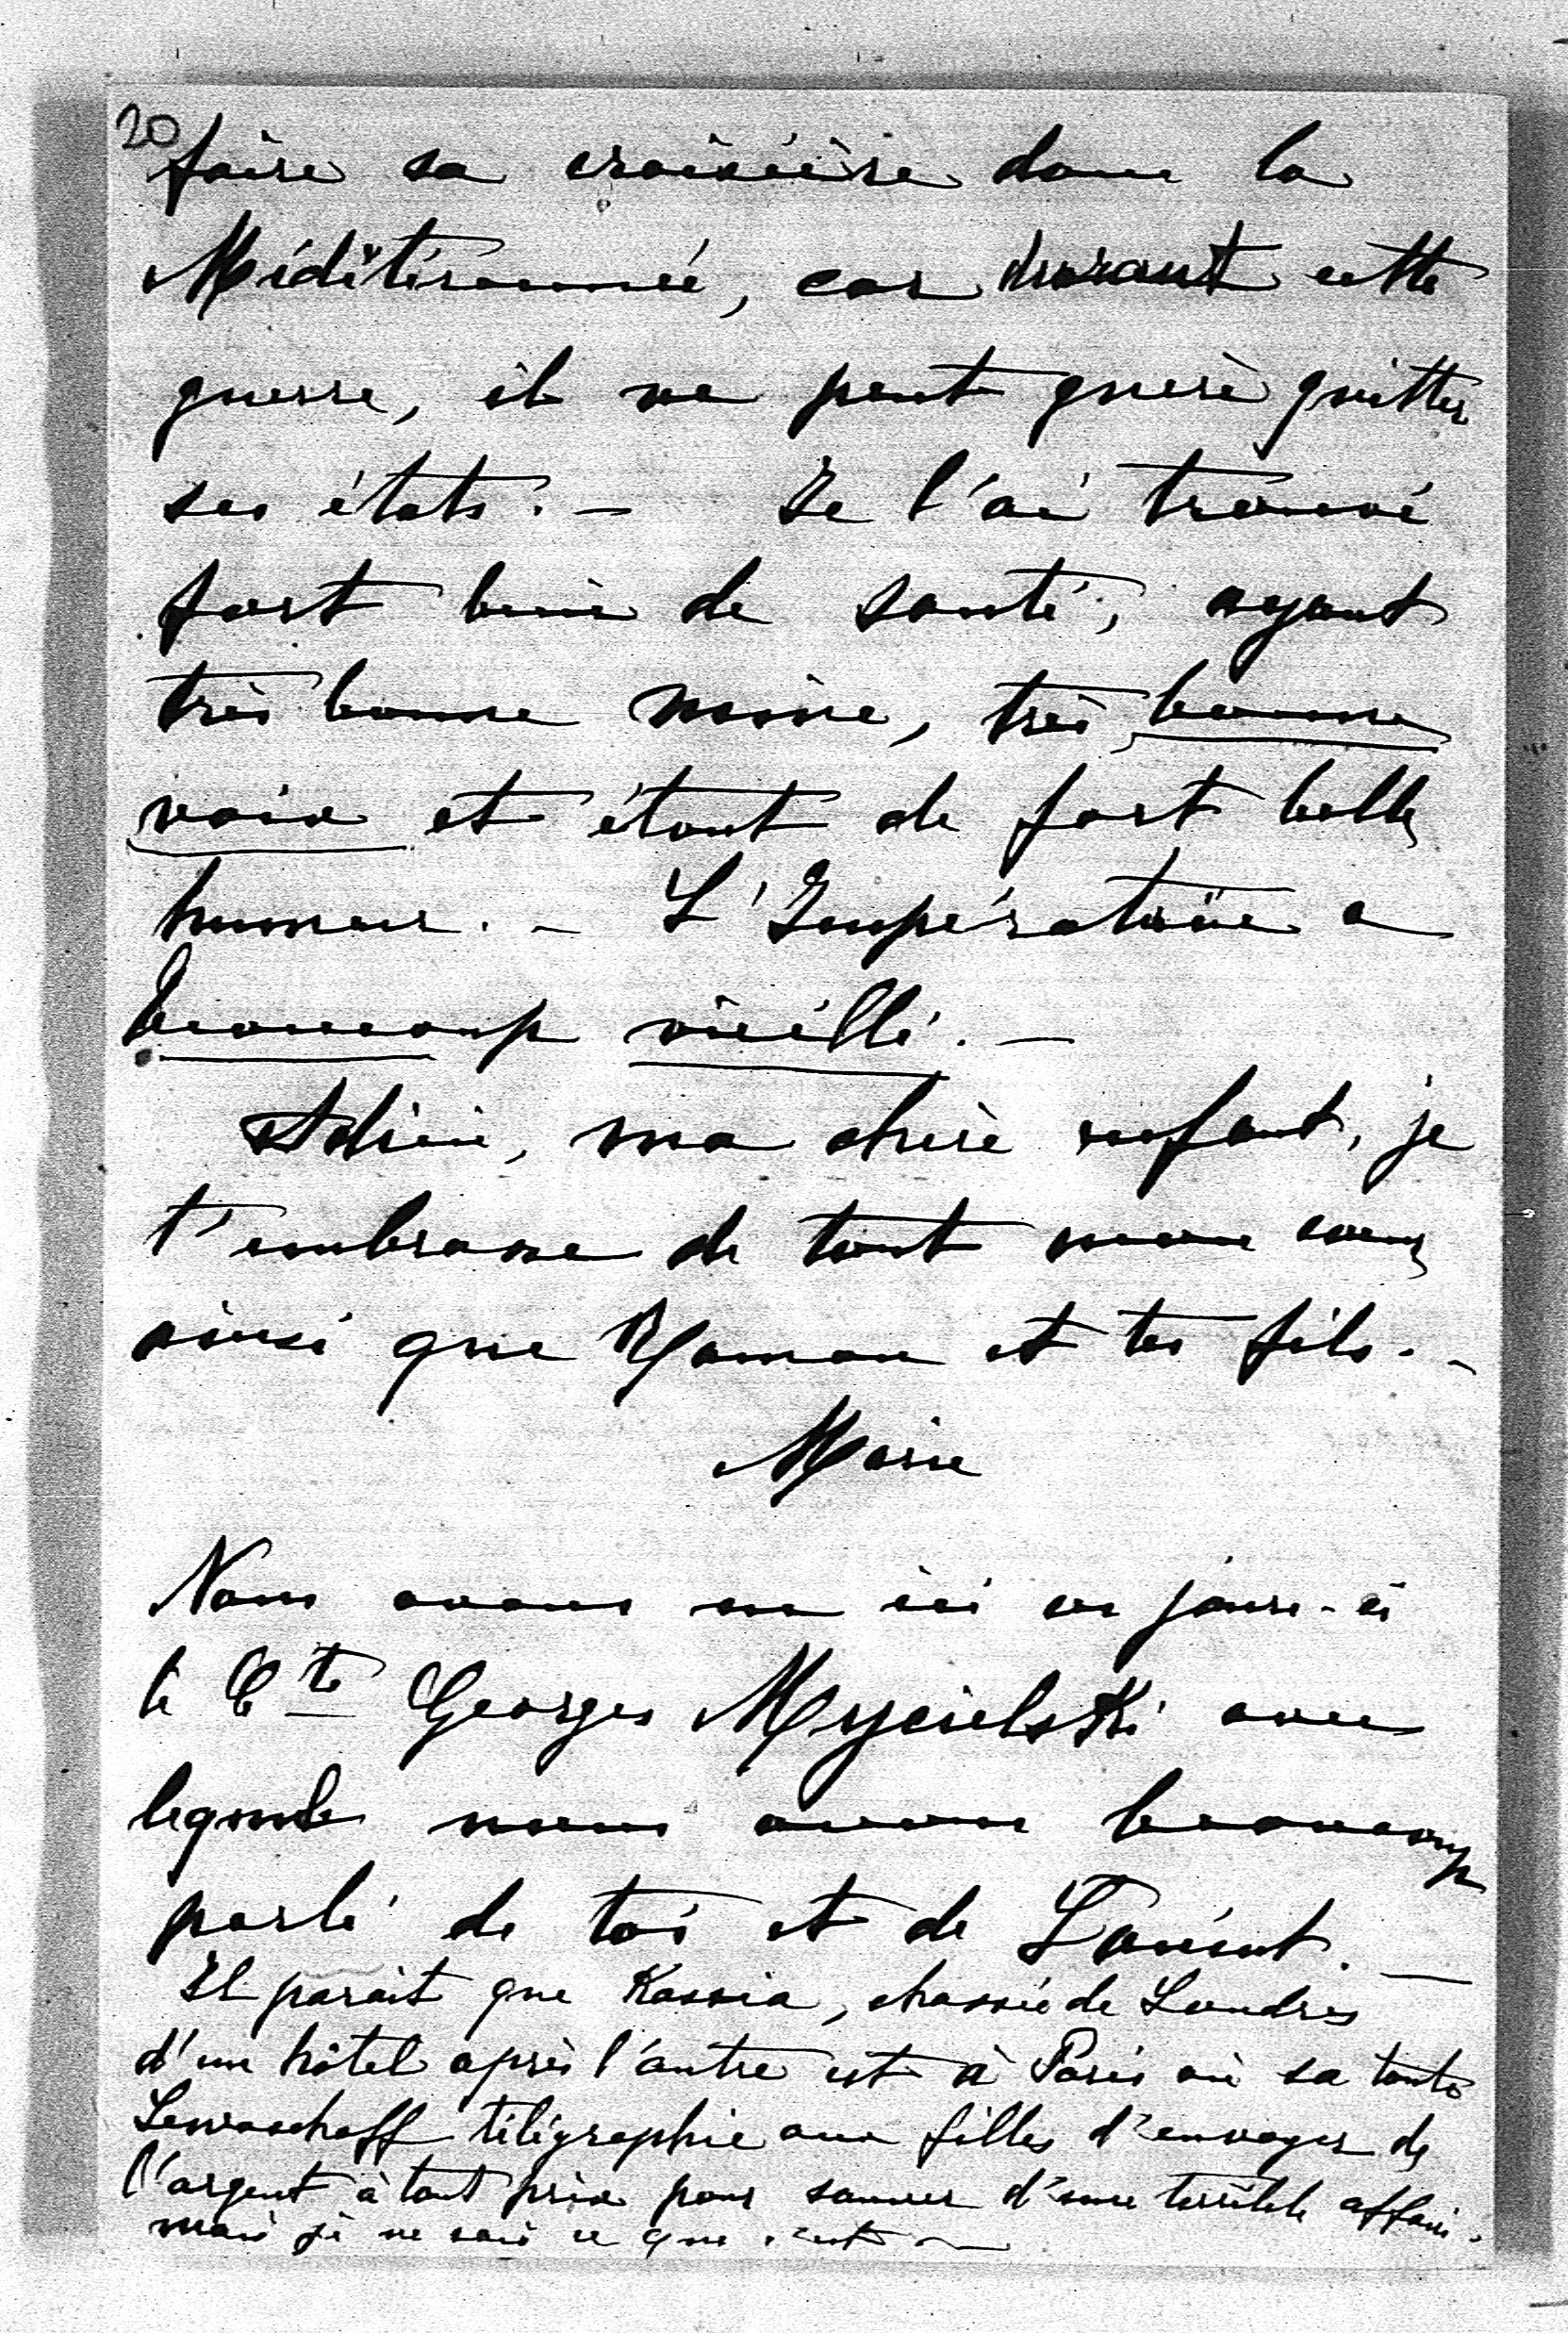 20
faire sa croisière dans la
Méditérannée, car durant cette
guerre, il ne peut guère quitter
ses états. — Je l'ai trouvé
fort bien de santé, ayant
très bonne mine, très bonne
voix et étant de fort belle
humeur. — L'Impératrice a
beaucoup vieilli. —
Adieu, ma chère enfant, je
t'embrasse de tout mon cœur
ainsi que Maman et tes fils. —
Marie
Nous avons vu ici ces jours-ci
le Cte Georges Mycielski avec
lequel nous avons beaucoup
parlé de toi et de Łańcut. —
Il parait que Kassia, chassée de Londres
d'un hôtel après l'autre est à Paris où sa tante
Lewascheff télégraphie aux filles d'envoyer de
l'argent à tout prix pour sauver d'une terrible affaire.
mais je ne sais ce que c'est —